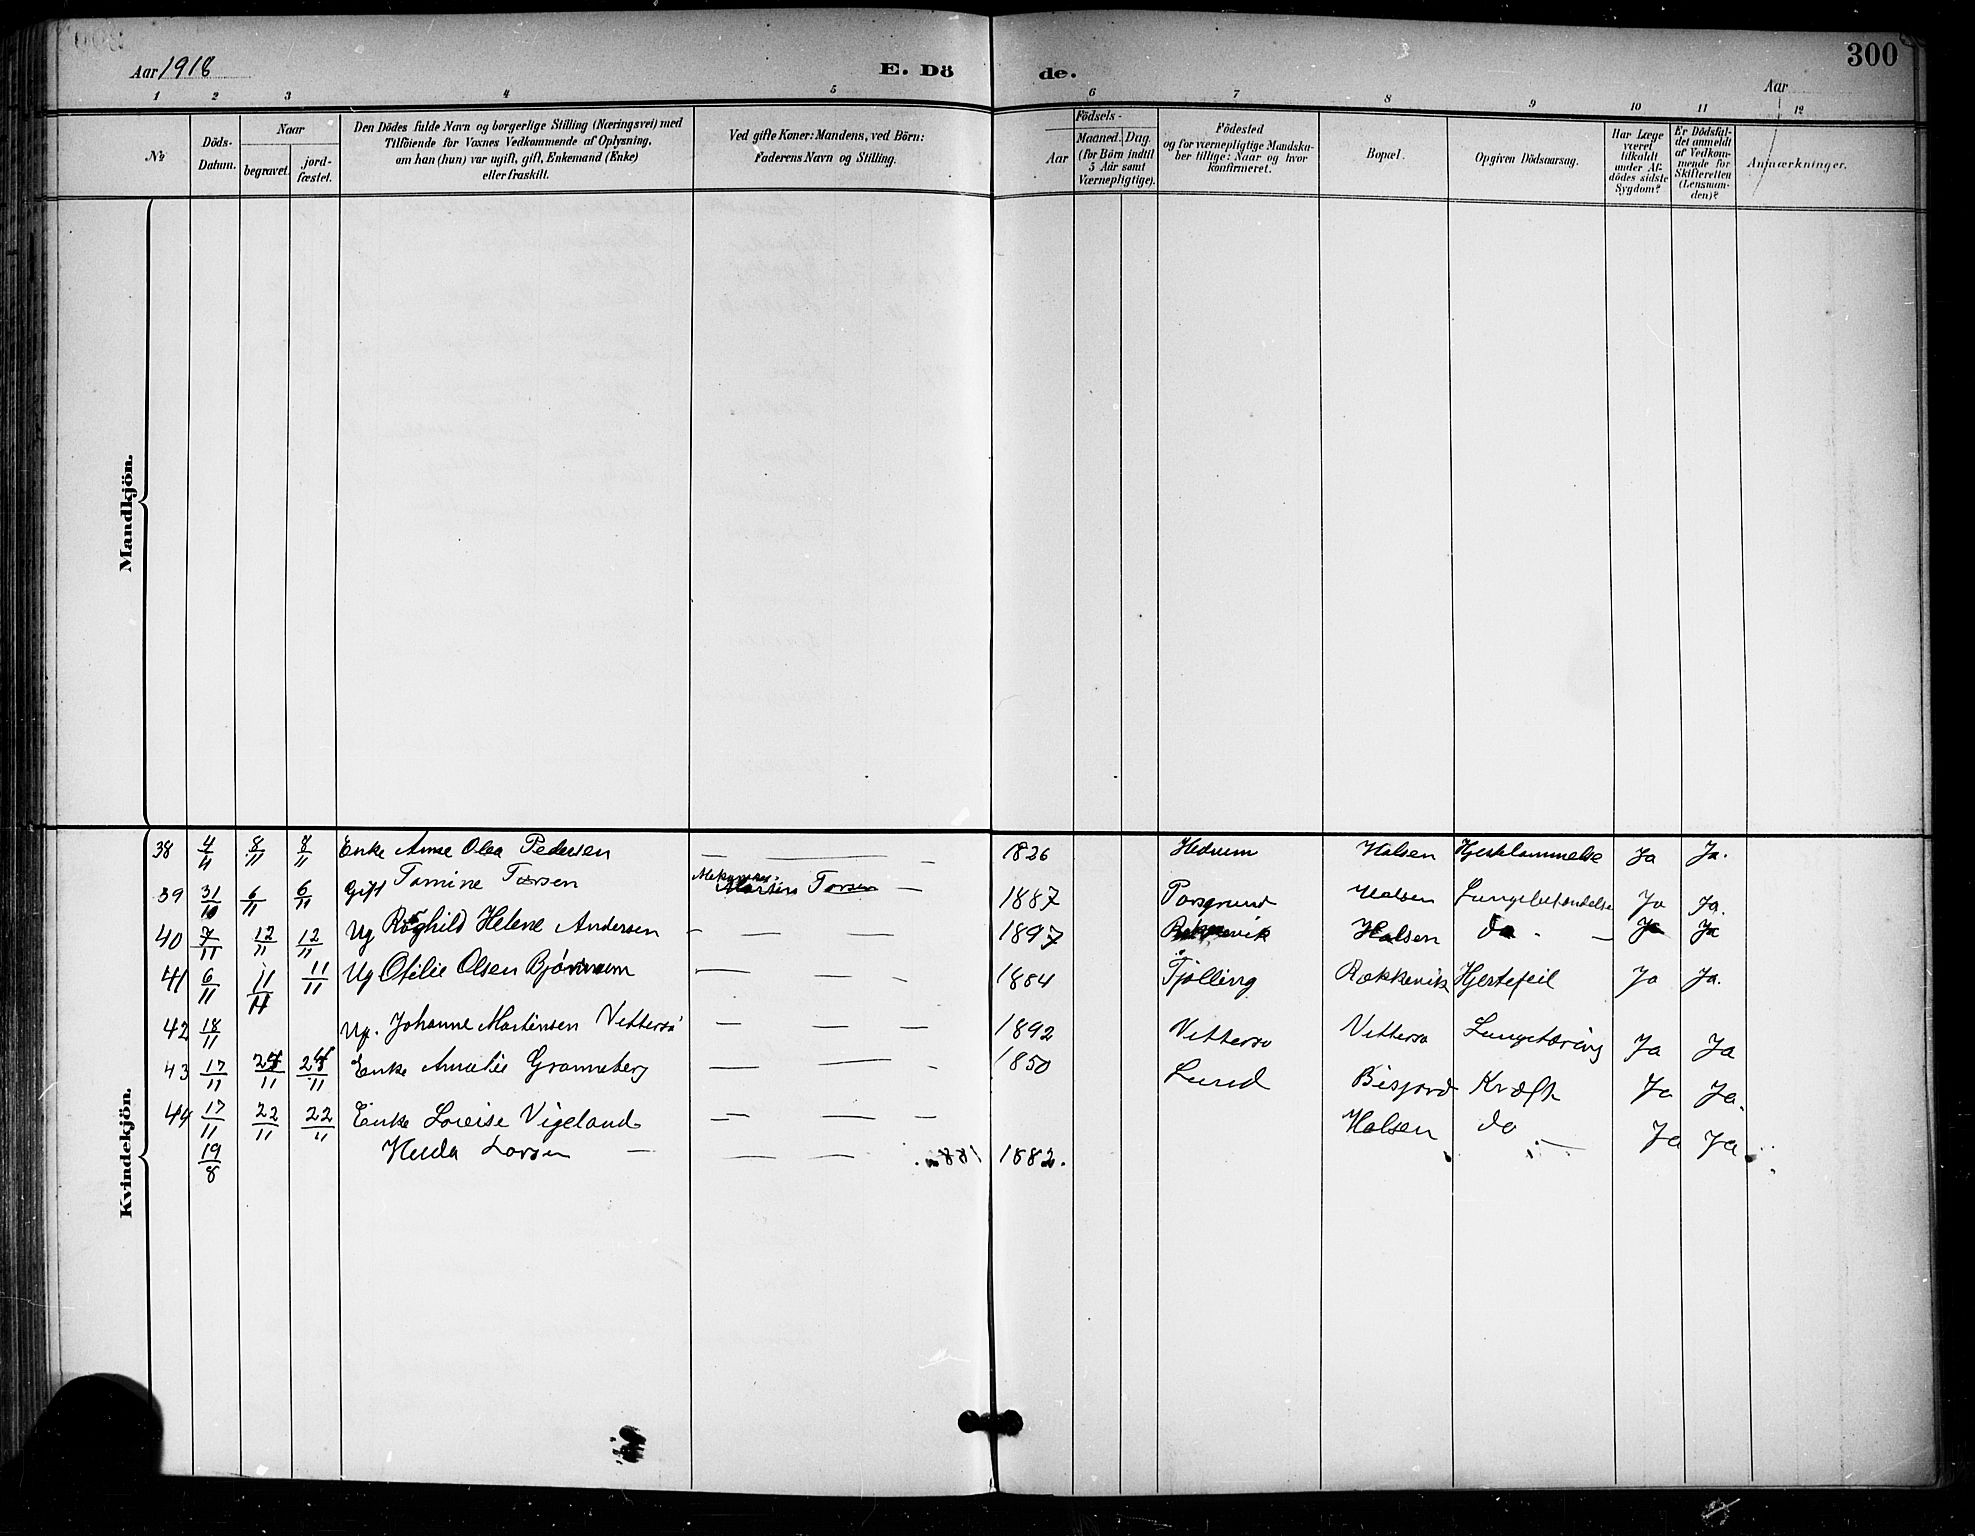 300
Aar 1918
E. Dö de.
Aar
1 2 3 4 5 6 7 8 9 10 11 12
№
Döds-Datum.
Naar
begravet.
jord-fæstet.
Den Dödes fulde Navn og borgerlige Stilling (Næringsvei) med
Tilföiende for Voxnes Vedkommende af Oplysning,
om han (hun) var ugift, gift, Enkemand (Enke)
eller fraskilt.
Ved gifte Koner: Mandens, ved Börn:
Faderens Navn og Stilling.
Födsels-
Aar
Maaned. Dag.
(for Börn indtil
5 Aar samt
Værnepligtige).
Födested
og for værnepligtige Mandska-
ber tillige: Naar og hvor
konfirmeret.
Bopæl.
Opgiven Dödsaarsag.
Har Læge
været
tilkaldt
under Af-
dödes sidste
Sygdom?
Er Dödsfal-
det anmeldt
af Vedkom-
mende for
Skifteretten
(Lensman-
den)?
Anmærkninger.
Mandkjön.
Kvindekjön.
38 4/11 8/11 8/11 Enke Anne Olea Pedersen — — — 1826 Hedrum Halsen Hjertelammelse Ja Ja.
39 31/10 6/11 6/11 Gift Tomine Torsen Martin Torsen — 1887 Porsgrund Halsen Lungebetændelse Ja Ja.
40 7/11 12/11 12/11 Ug Raghild Helene Andersen — — — — 1897 Halsen do — Ja Ja
41 6/11 11/11 11/11 Ug Otilie Olsen Bjönnum — — — 1884 Tjølling Rækkevik Hjertefeil Ja Ja.
42 18/11 Ug. Johanne Martinsen Vittersø — — — 1892 Vittersø Vittersø Lungetæring Ja Ja
43 17/11 24/11 24/11 Enke Amalie Granneberg — — — 1850 Lund Bisjord Kræft Ja Ja.
44 17/11 22/11 22/11 Enke Lovise Vigeland — — — Halsen do — Ja Ja
19/8 Hulda Larsen — — — 1882.